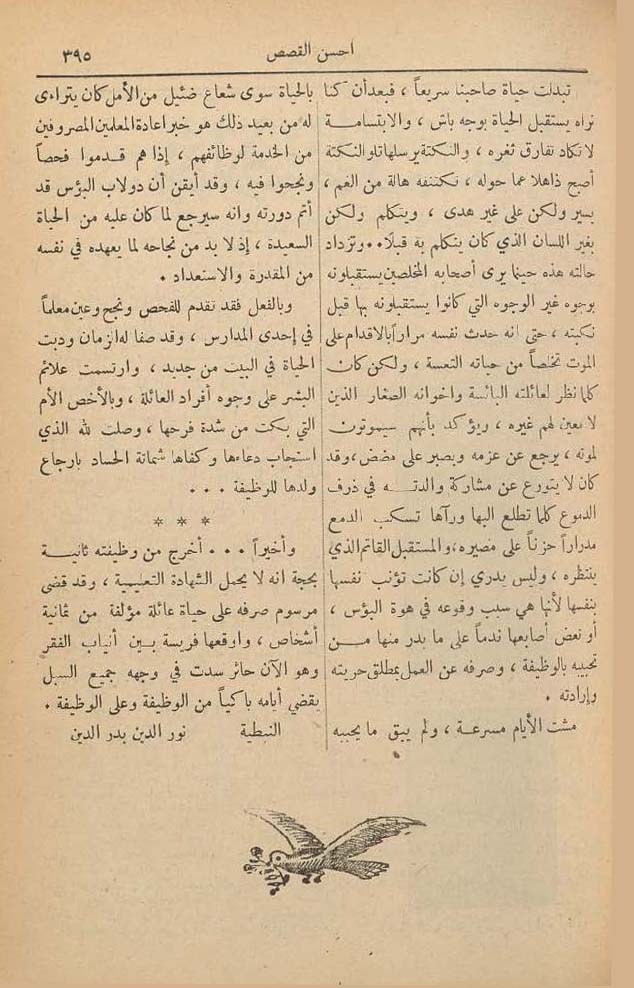 احسن القصص
٣٩٥
تبدلت حياة صاحبنا سريعاً ، فبعد أن كنا
نراه يستقبل الحياة بوجه باش ، والابتسامة
لا تكاد تفارق ثغره ، والنكتة يرسلها تلو النكتة
أصبح ذاهلا عما حوله ، تكتنفه هالة من الغم ،
يسير ولكن على غير هدى ، ويتكلم ولكن
بغير اللسان الذي كان يتكلم به قبلا . . وتزداد
حالته هذه حينما يرى أصحابه المخلصين يستقبلونه
بوجوه غير الوجوه التي كانوا يستقبلونه بها قبل
نكبته ، حتى انه حدث نفسه مراراً بالاقدام على
الموت تخلصاً من حياته التعسة ، ولكن كان
كلما نظر لعائلته البائسة واخوانه الصغار الذين
لا معين لهم غيره ، ويؤكد بأنهم سيموتون
لموته ، يرجع عن عزمه ويصبر على مضض ، وقد
كان لا يتورع عن مشاركة والدته في ذرف
الدموع كلما تطلع اليها ورآها تسكب الدمع
مدراراً حزناً على مصيره ، والمستقبل القاتم الذي
ينتظره ، وليس يدري إن كانت تؤنب نفسها
بنفسها لأنها هي سبب وقوعه في هوة البؤس ،
أو تعض أصابعها ندماً على ما بدر منها من
تحبيبه بالوظيفة ، وصرفه عن العمل بمطلق حريته
وإرادته .
مشت الأيام مسرعة ، ولم يبق ما يحببه
بالحياة سوى شعاع ضئيل من الأمل كان يتراءى
له من بعيد ذلك هو خبر اعادة المعلمين المصروفين
من الخدمة لوظائفهم ، إذا هم قدموا فحصاً
ونجحوا فيه ، وقد أيقن أن دولاب البؤس قد
أتم دورته وانه سيرجع لما كان عليه من الحياة
السعيدة ، إذ لا بد من نجاحه لما يعهده في نفسه
من المقدرة والاستعداد .
وبالفعل فقد تقدم للفحص ونجح وعين معلماً
في إحدى المدارس ، وقد صفا له الزمان ودبت
الحياة في البيت من جديد ، وارتسمت علائم
البشر على وجوه أفراد العائلة ، وبالأخص الأم
التي بكت من شدة فرحها ، وصلت لله الذي
استجاب دعاءها وكفاها شماتة الحساد بارجاع
ولدها للوظيفة . . .
* * *
وأخيراً . . . أخرج من وظيفته ثانية
بحجة انه لا يحمل الشهادة التعليمية ، وقد قضى
مرسوم صرفه على حياة عائلة مؤلفة من ثمانية
أشخاص ، واوقعها فريسة بين أنياب الفقر
وهو الآن حائر سدت في وجهه جميع السبل
يقضي أيامه باكياً من الوظيفة وعلى الوظيفة .
النبطية نور الدين بدر الدين